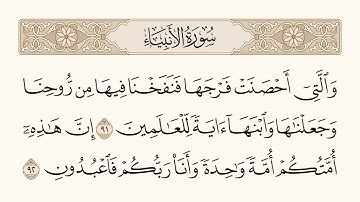 سُورَةُ الأَنبِيَاءِ
وَٱلَّتِيٓ أَحۡصَنَتۡ فَرۡجَهَا فَنَفَخۡنَا فِيهَا مِن رُّوحِنَا
وَجَعَلۡنَٰهَا وَٱبۡنَهَآ ءَايَةٗ لِّلۡعَٰلَمِينَ ٩١ إِنَّ هَٰذِهِۦٓ
أُمَّتُكُمۡ أُمَّةٗ وَٰحِدَةٗ وَأَنَا۠ رَبُّكُمۡ فَٱعۡبُدُونِ ٩٢